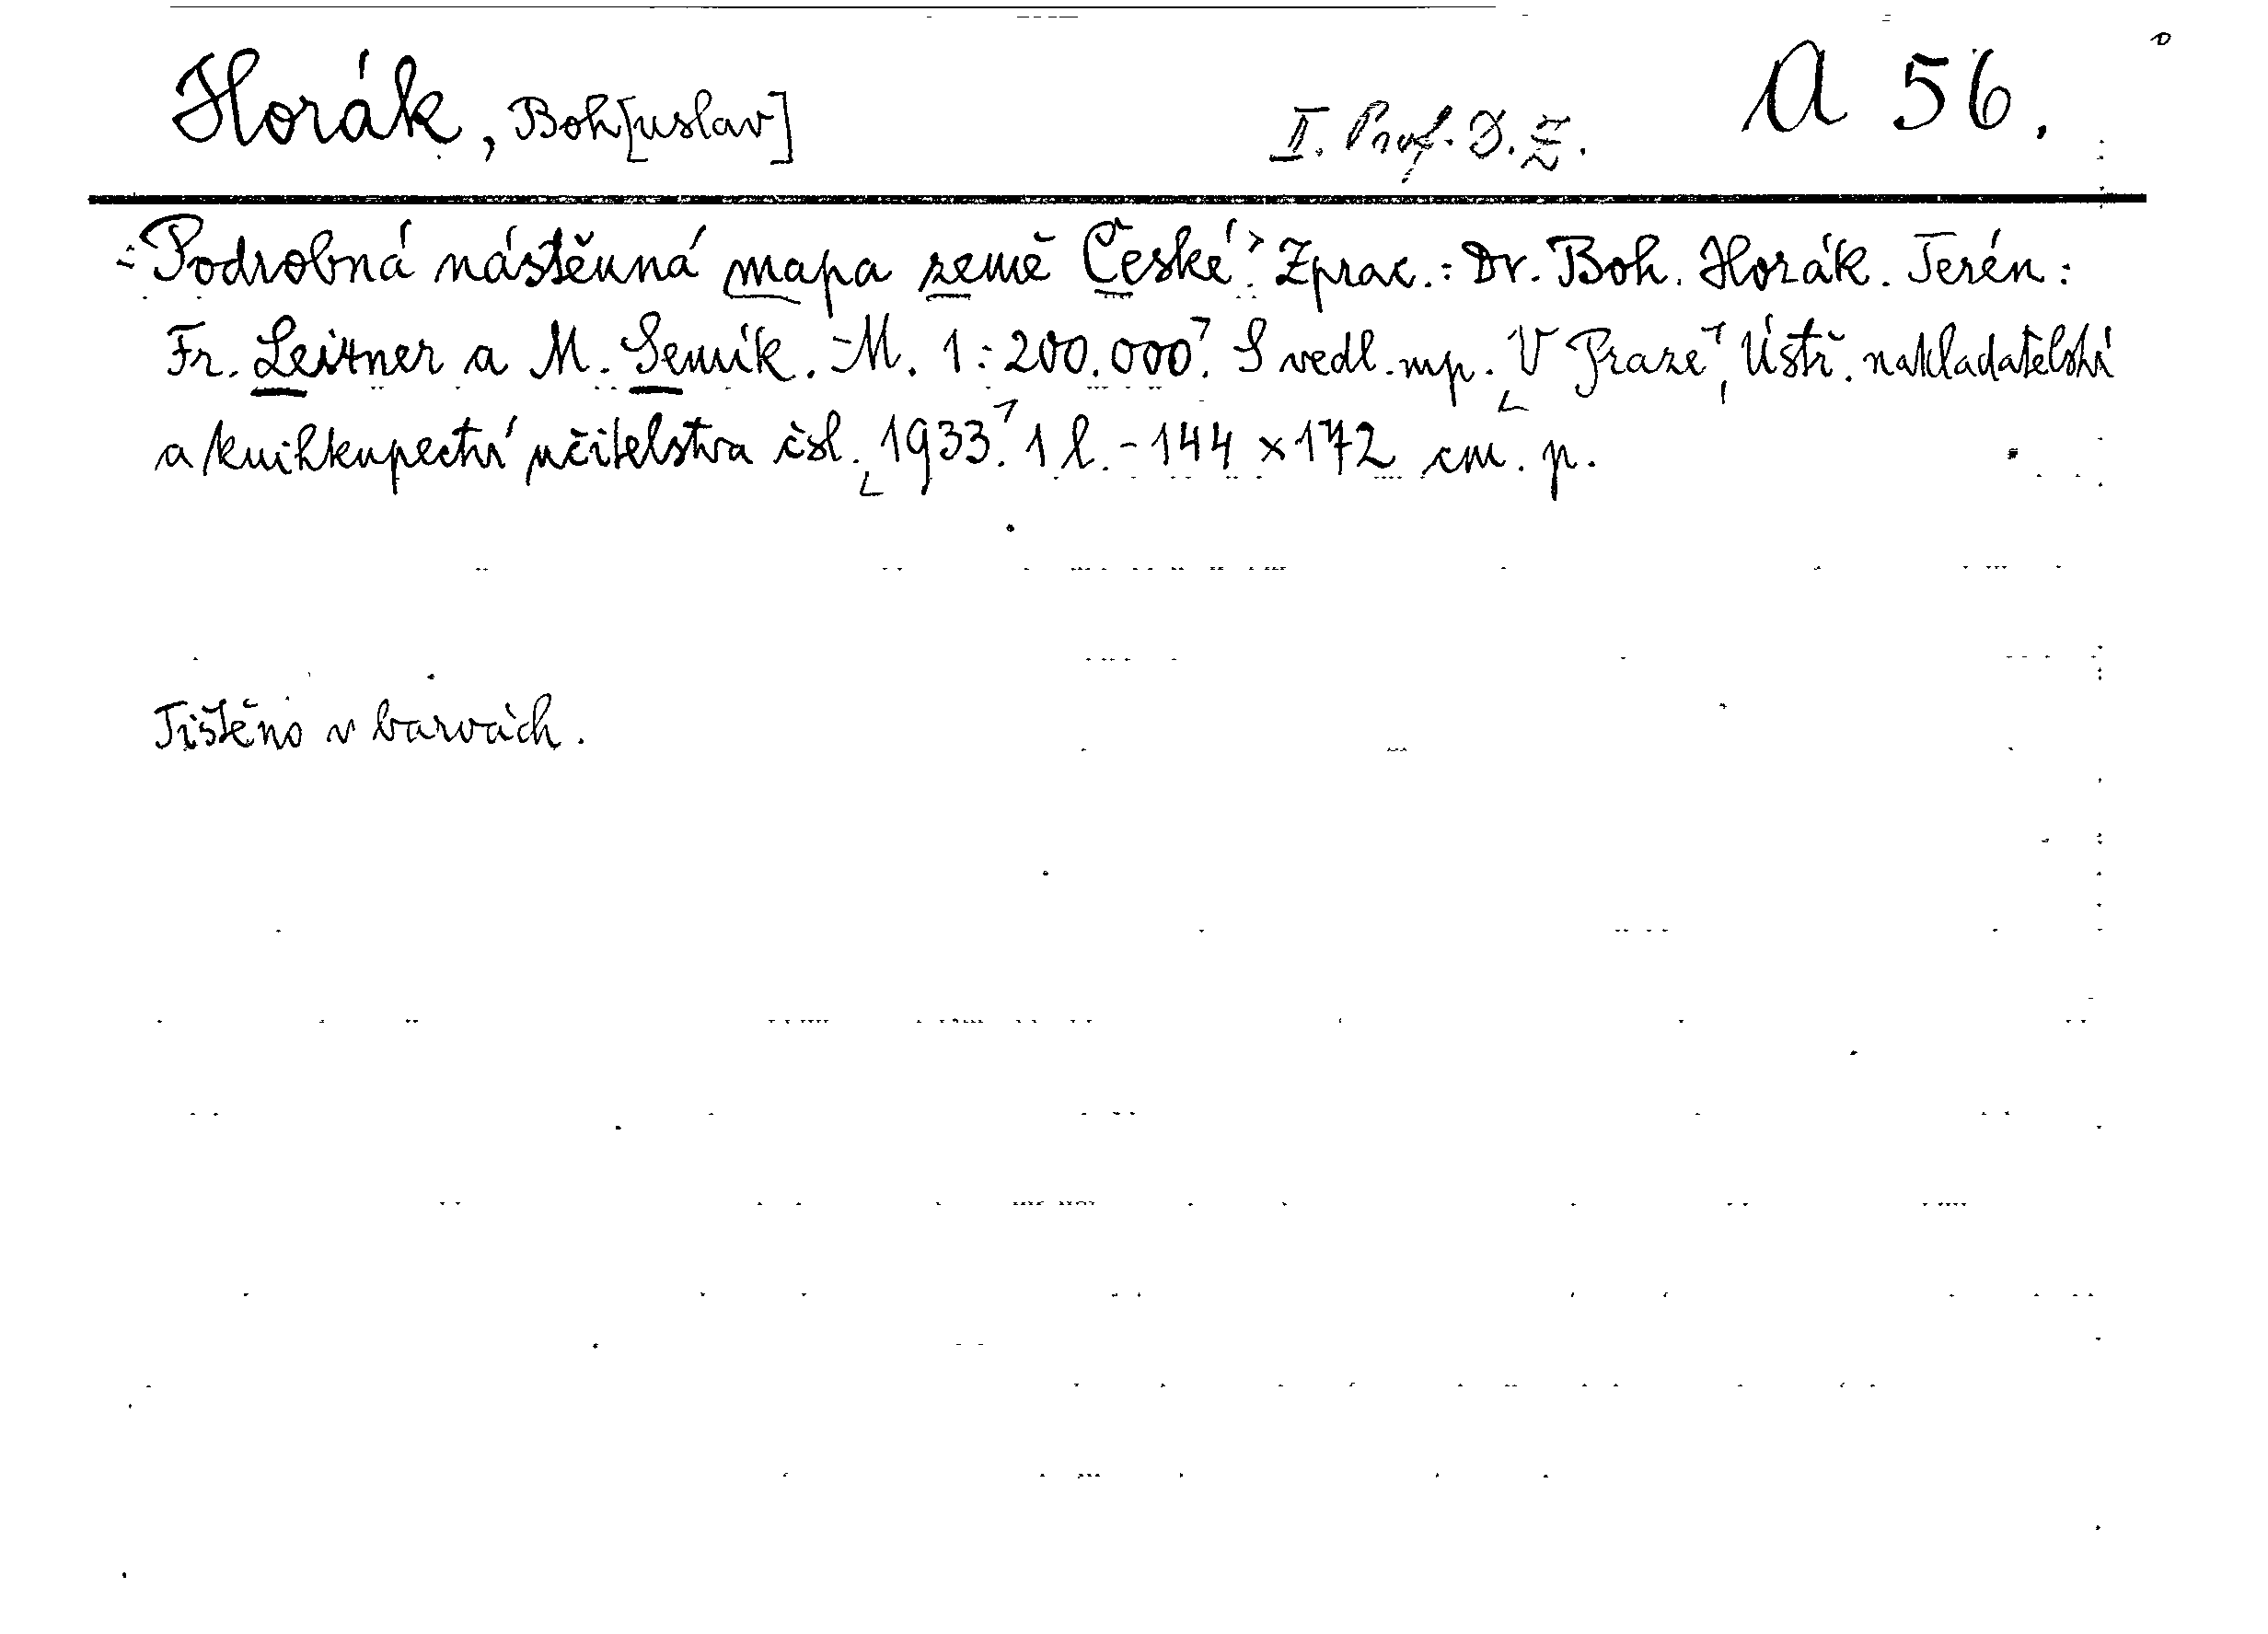 Horák, Boh[uslav] II. Prof. D. Z. A 56.
Podrobná nástěnná mapa země České. Zprac.: Dr. Boh. Horák. Terén:
Fr. Leitner a M. Semík. - M. 1:200.000. S vedl. mp. V Praze, Ústř. nakladatelství
a knihkupectví učitelstva čsl. 1933. 1 l. - 144 x 172 cm. p.
Tištěno v barvách.